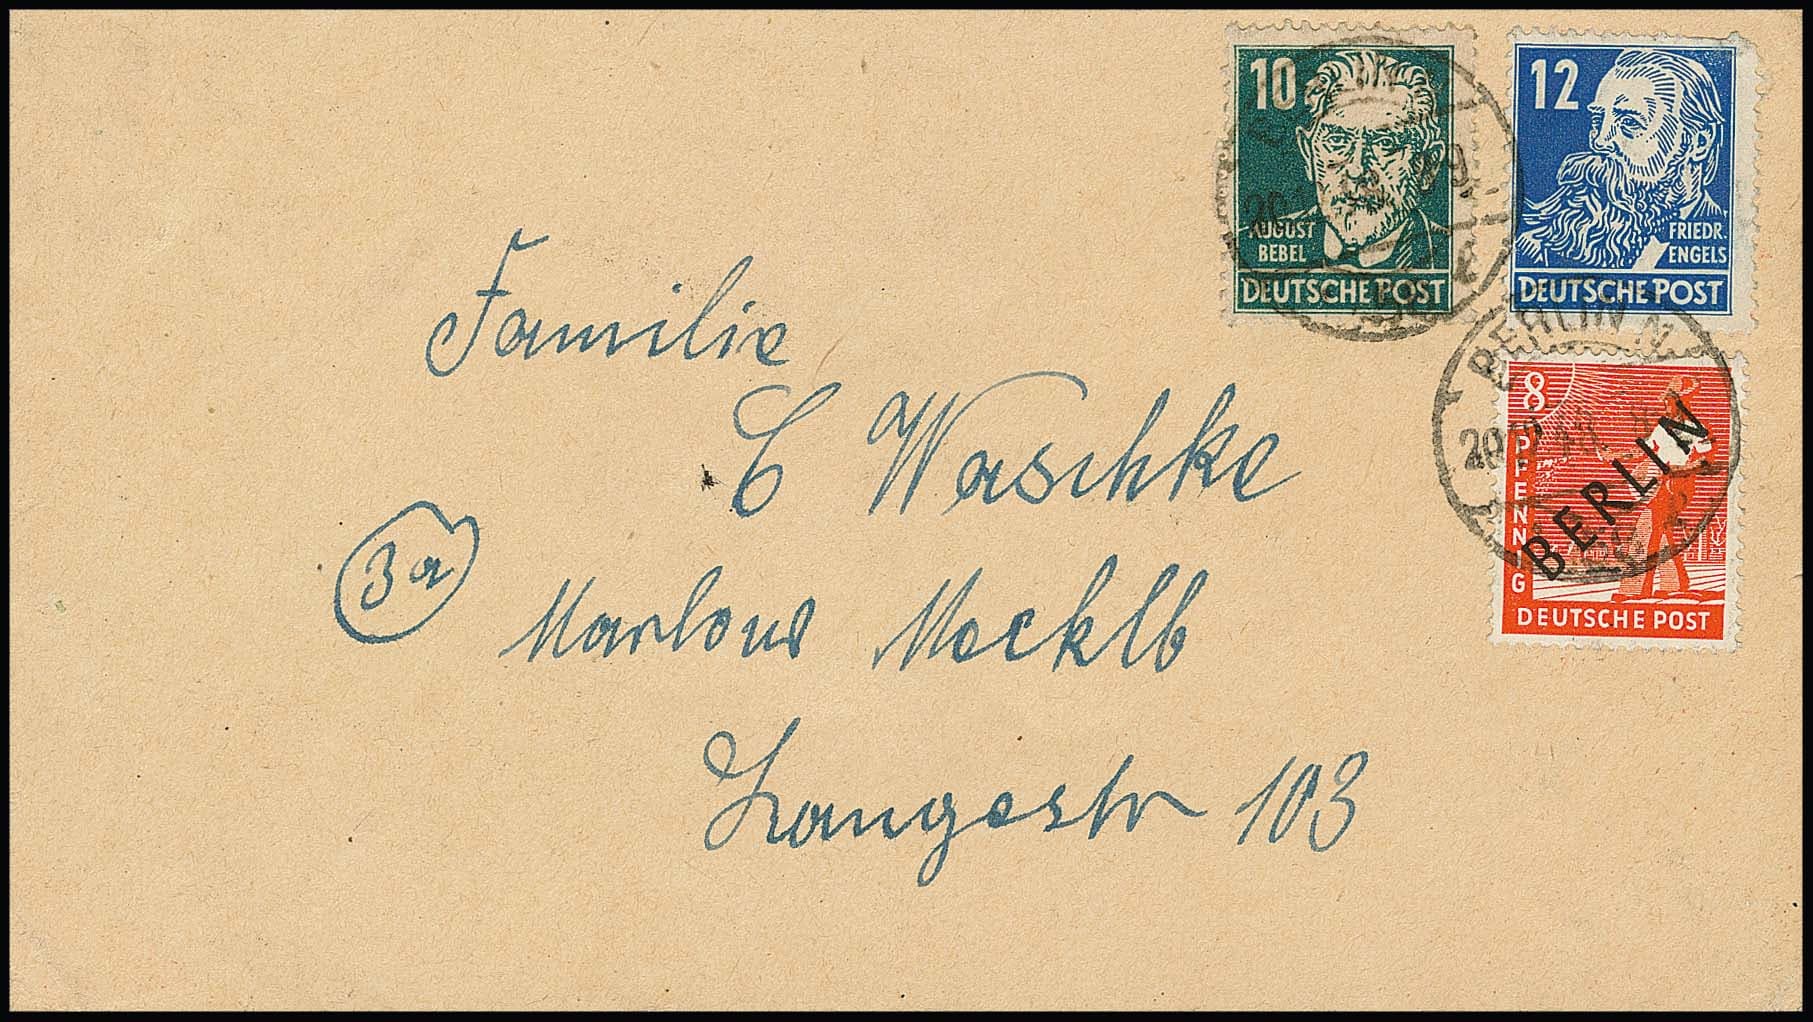 10
AUGUST
BEBEL
DEUTSCHE POST
12
FRIEDR.
ENGELS
DEUTSCHE POST
BERLIN N
8
PFENNIG
BERLIN
DEUTSCHE POST
Familie
E Waschke
3a
Marlow Mecklb
Langestr 103